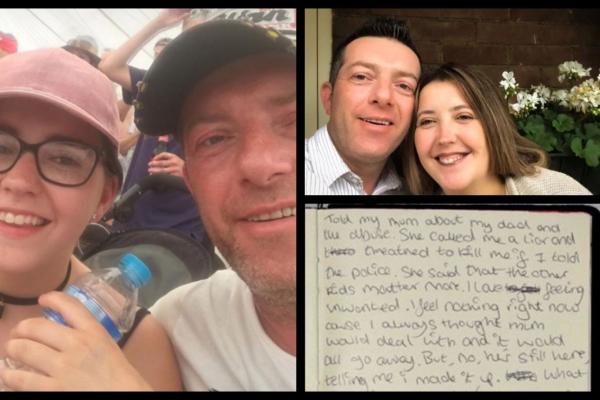 Told my mum about my dad and
the abuse. She called me a liar and
threatned to kill me if I told
the police. She said that the other
kids matter more. I
feeling
unwanted. I feel nothing right now
cause I always thought mum
would deal with and it would
all go away. But, no, he's still here,
telling me i made it up. What